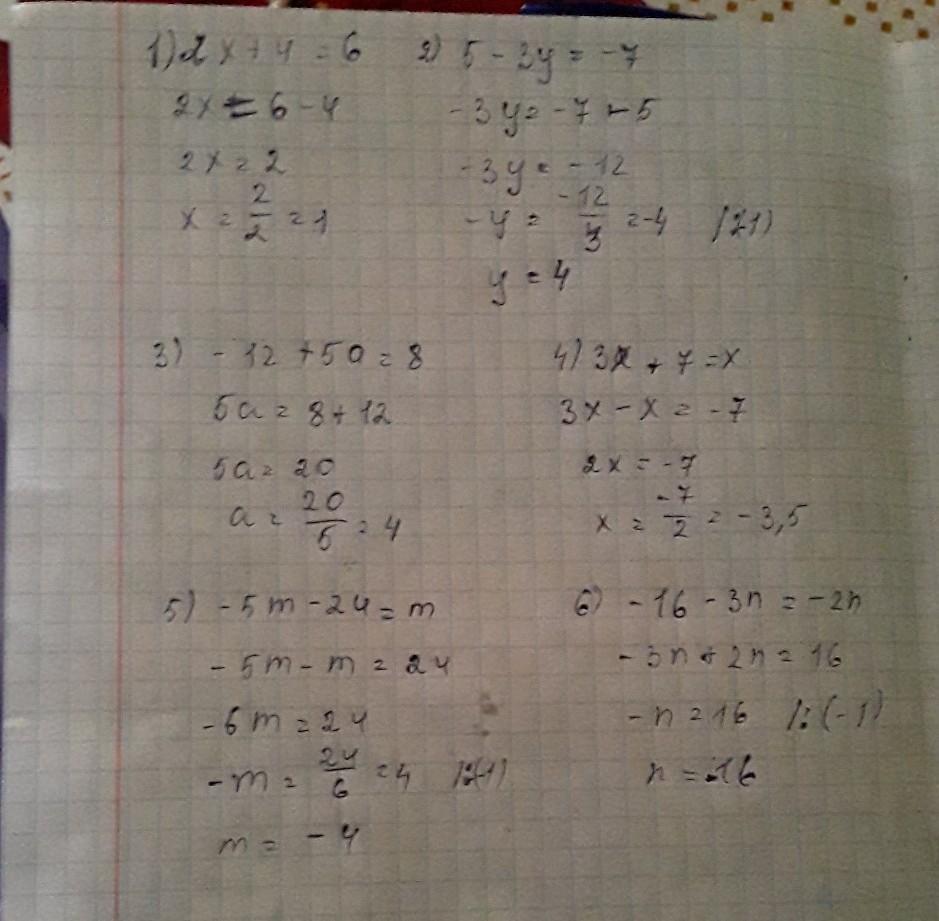 1) 2x + 4 = 6
2x = 6 - 4
2x = 2
x = 2/2 = 1
2) 5 - 3y = -7
-3y = -7 - 5
-3y = -12
-y = -12/3 = -4
y = 4
3) -12 + 5a = 8
5a = 8 + 12
5a = 20
a = 20/5 = 4
4) 3x + 7 = x
3x - x = -7
2x = -7
x = -7/2 = -3,5
5) -5m - 24 = m
-5m - m = 24
-6m = 24
-m = 24/6 = 4
m = -4
6) -16 - 3n = -2n
-3n + 2n = 16
-n = 16 |:(-1)
n = -16